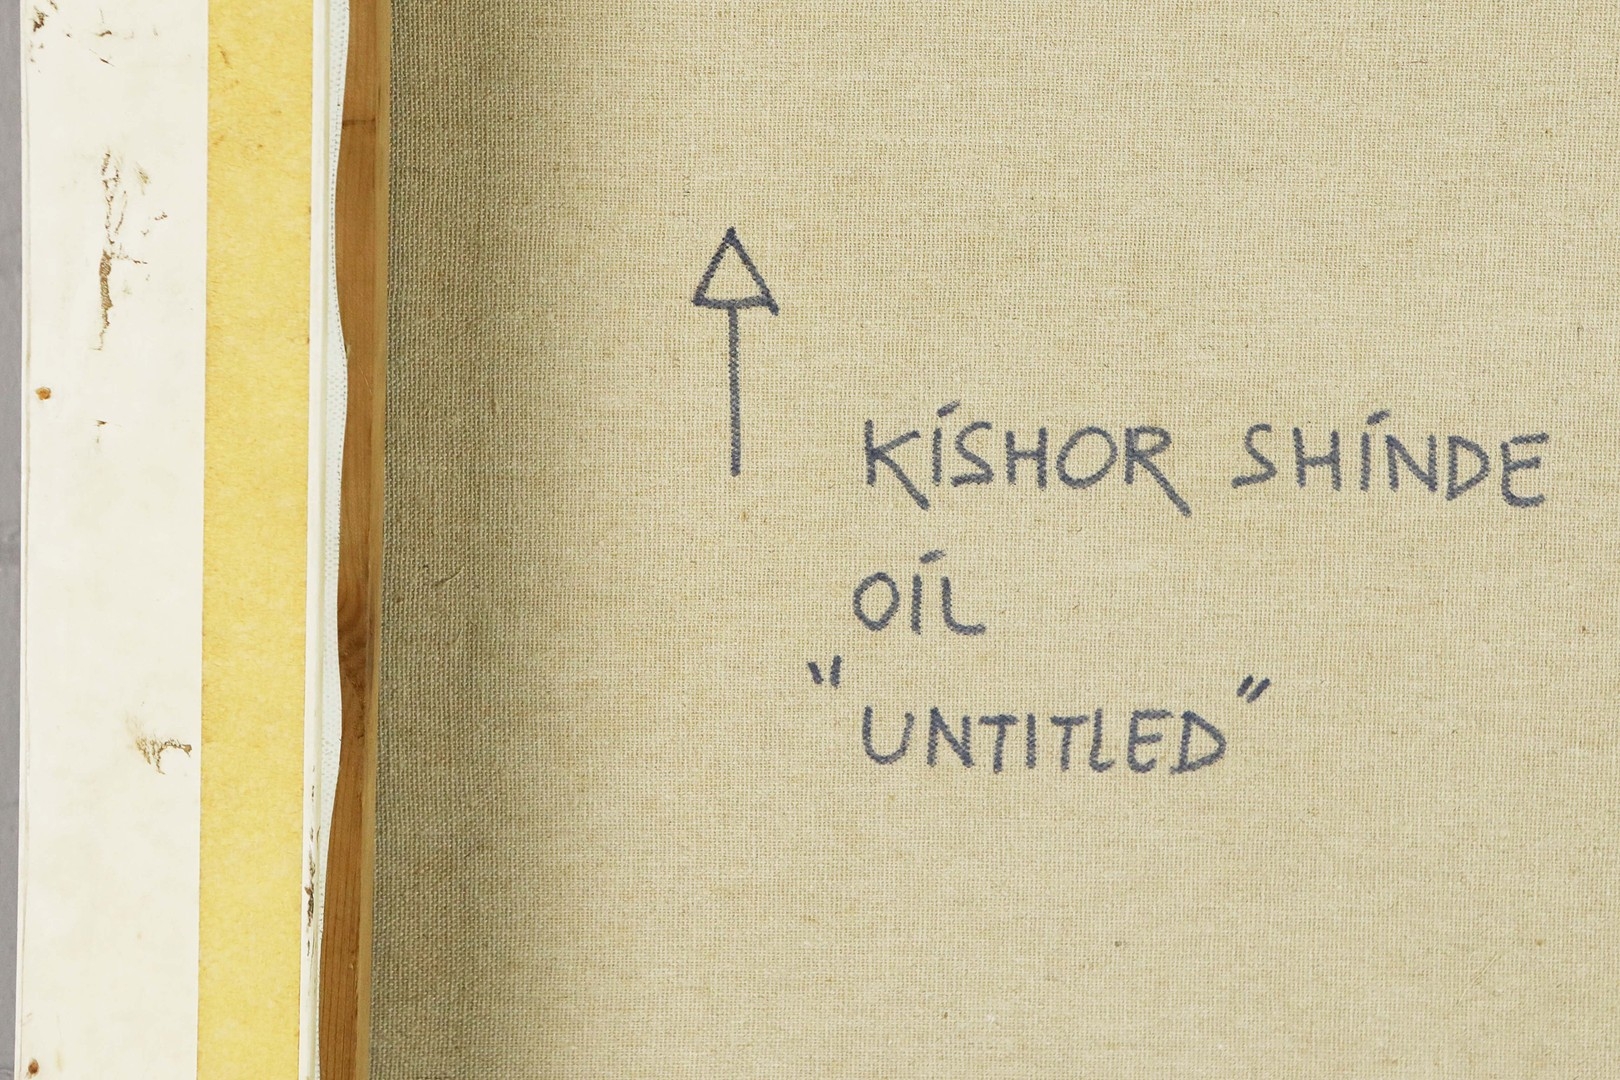 KISHOR SHINDE
OIL
"UNTITLED"